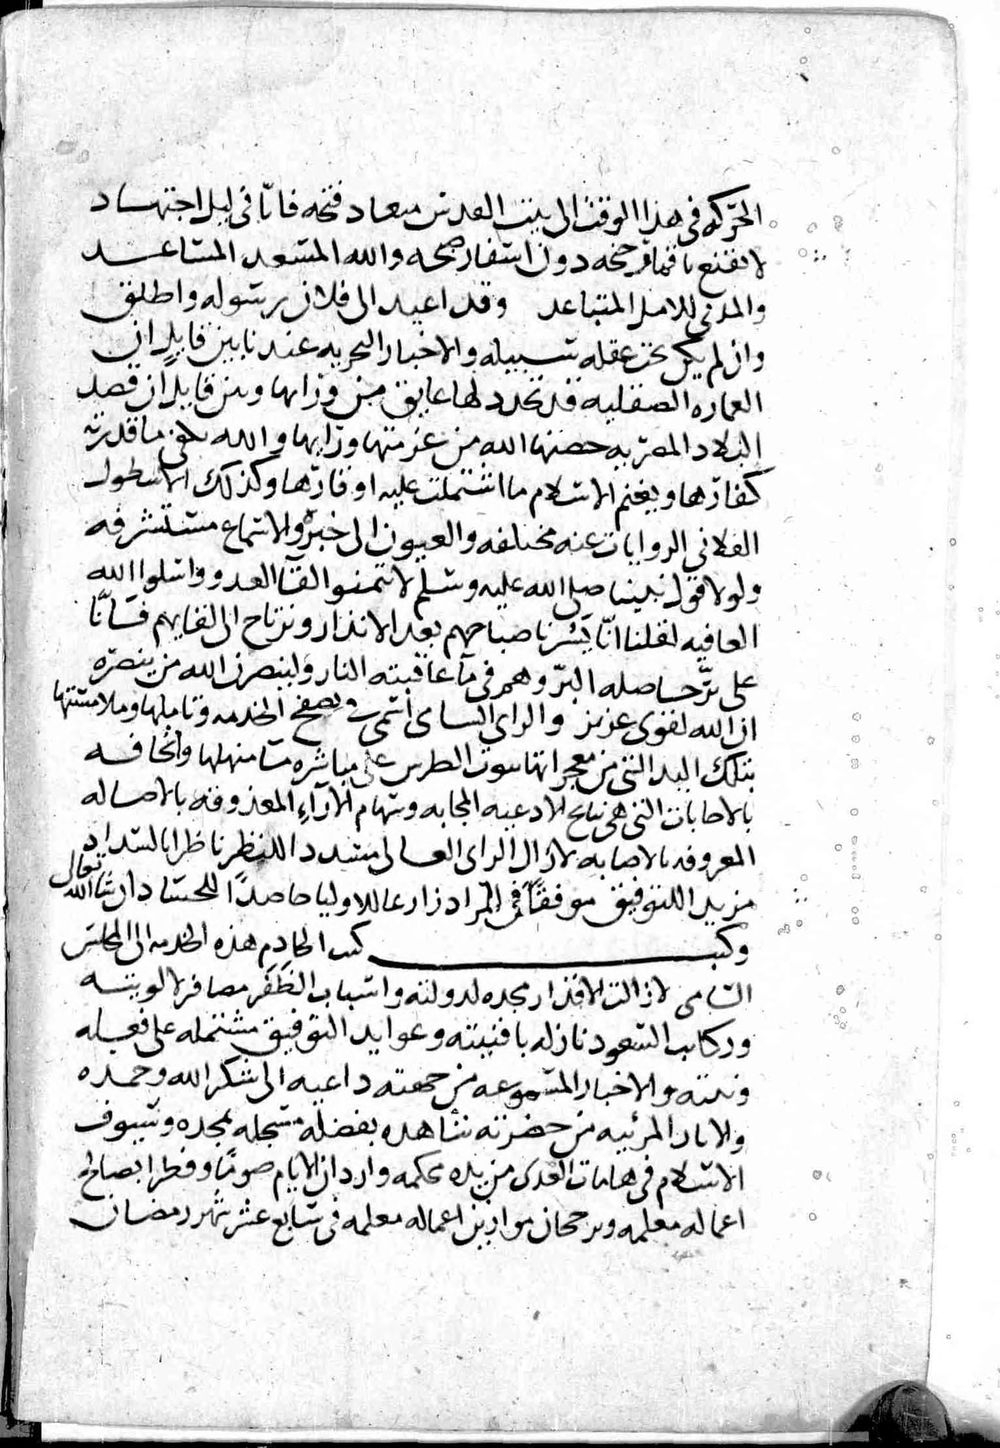 الحركه في هذا الوقت الى بيت المقدس ميعاد فتحه فانا في ليل اجتهاد
لا نقنع باقمار جنحه دون اسفار صبحه والله المسعد المساعد
والمدني للامل المتباعد وقد اعيد الى فلان رسوله واطلق
وان لم يكن تحت عقله سبيله والاخبار البحريه عندنا بين قايل ان
العماره الصقليه قد تجدد لها عايق من ورايها وبين قايل ان قصد
البلاد المصريه حصنها الله من عزمتها ورايها والله يكفي ما قدرته
كفارها ويغنم الاسلام ما اشتملت عليه اوقارها وكذلك الاسطول
الفلاني الروايات عنه مختلفه والعيون الى خبره والاسماع مستشرفه
ولولا قول نبينا صلى الله عليه وسلم لا تتمنوا لقا العدو واسلوا الله
العافيه لقلنا انا يسرنا صباحهم بعد الانذار ونرتاح الى لقايهم فانا
على بر حاصله البر وهم في ما عاقبته النار ولينصرن الله من ينصره
ان الله لقوي عزيز والراي السامي اسمى في تصفح الخدمه وتاملها وملامستها
بتلك اليد التي من معجزاتها ثبوت الطرس على مباشره منهلها واتحافه
بالاجابات التي هي نتايج الادعيه المجابه وسهام الاراء المعذوقه بالاصاله
المعروفه بالاصابه لا زال الراي العالي مسددا للنظر ناظرا بالسداد
مزيد التوفيق موفقا في المراد زارعا للاوليا حاصدا للحساد ان شا الله تعالى
وكتب كتب الخادم هذه الخدمه الى المجلس
السامي لا زالت الاقدار منجده لدولته واسباب الظفر مصافره لالويته
وركايب السعود نازله بافنيته وعوايد التوفيق مشتمله على فعله
ونيته والاخبار المسموعه من جهته داعيه الى شكر الله وحمده
والاثار المرئيه من حضرته شاهده بفضله مسجله بمجده وسيوف
الاسلام في هامات العدى من يده محكمه واردان الايام صوما وفطرا بصالح
اعماله معلمه وبرجحان موازين اعماله معلمه في سابع عشر شهر رمضان